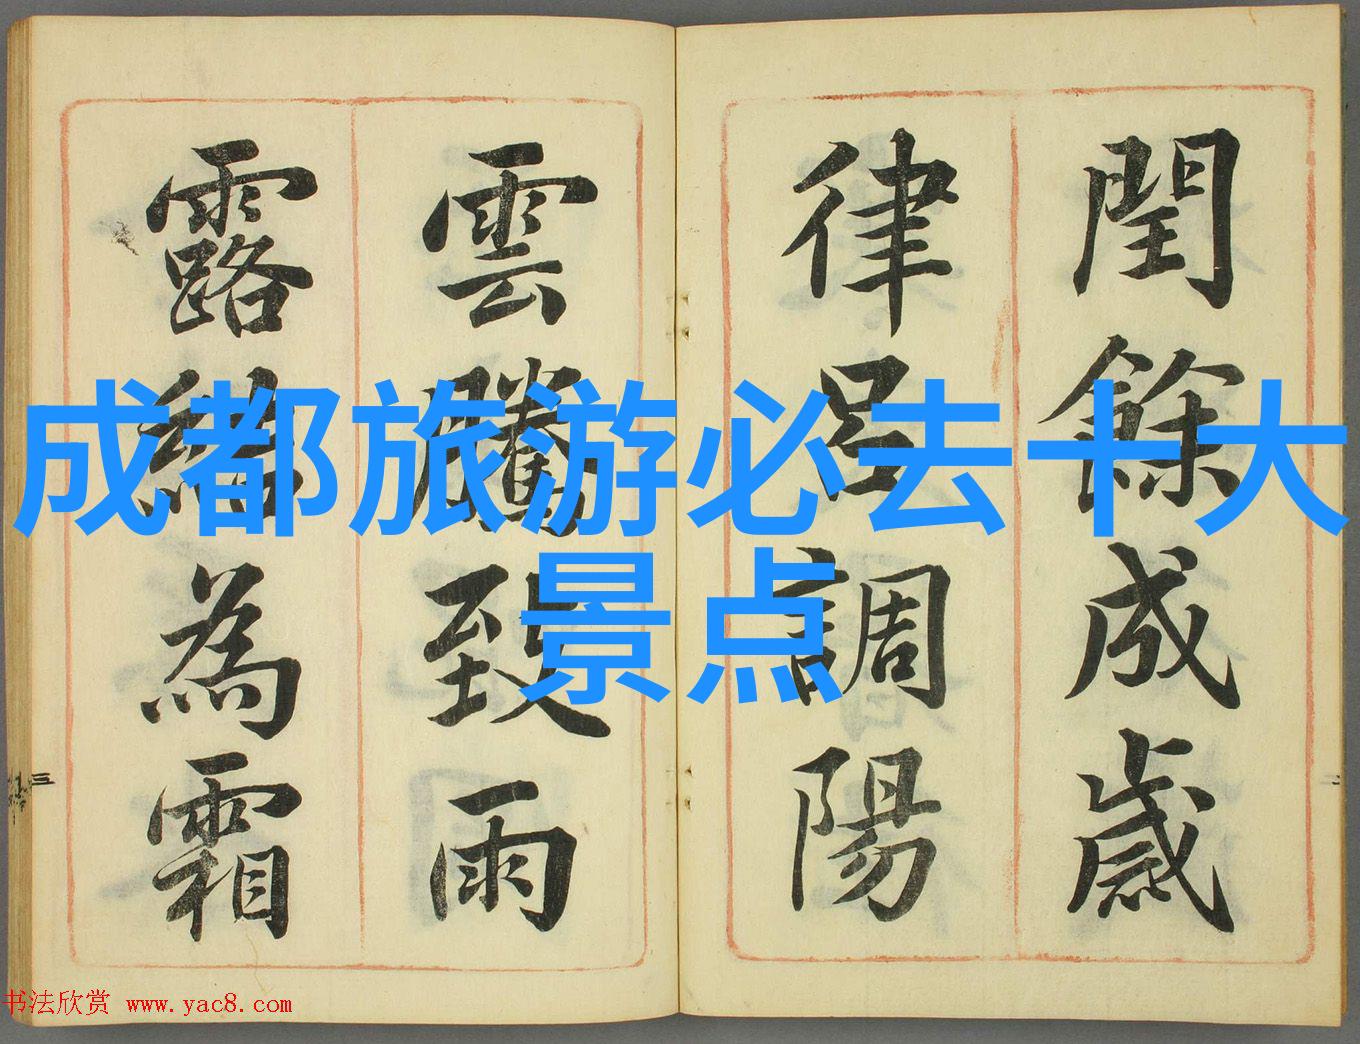 閏餘成歲
律吕調陽
雲騰致雨
露結為霜
成都旅游必去十大
景点
三
二
书法欣赏 www.yac8.com